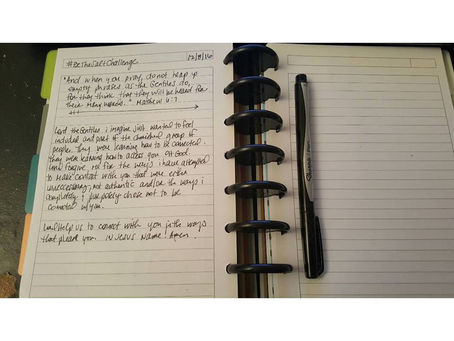 #BeTheSaltChallenge
"And when you pray, do not heap up
empty phrases as the Gentiles do,
for they think that they will be heard for
their many words." Matthew 6:7
Lord the Gentiles i imagine just wanted to feel
included and part of the chosen group of
people. They were learning how to be connected.
they were learning how to access you, God.
Lord forgive me for the ways i have attempted
to make contact with you that were either
unnecessary, not authentic and/or the ways i
completely & purposely chose not to be
connected w/ you.
Lord help us to connect with you in the ways
that pleases you. In Jesus Name! Amen.